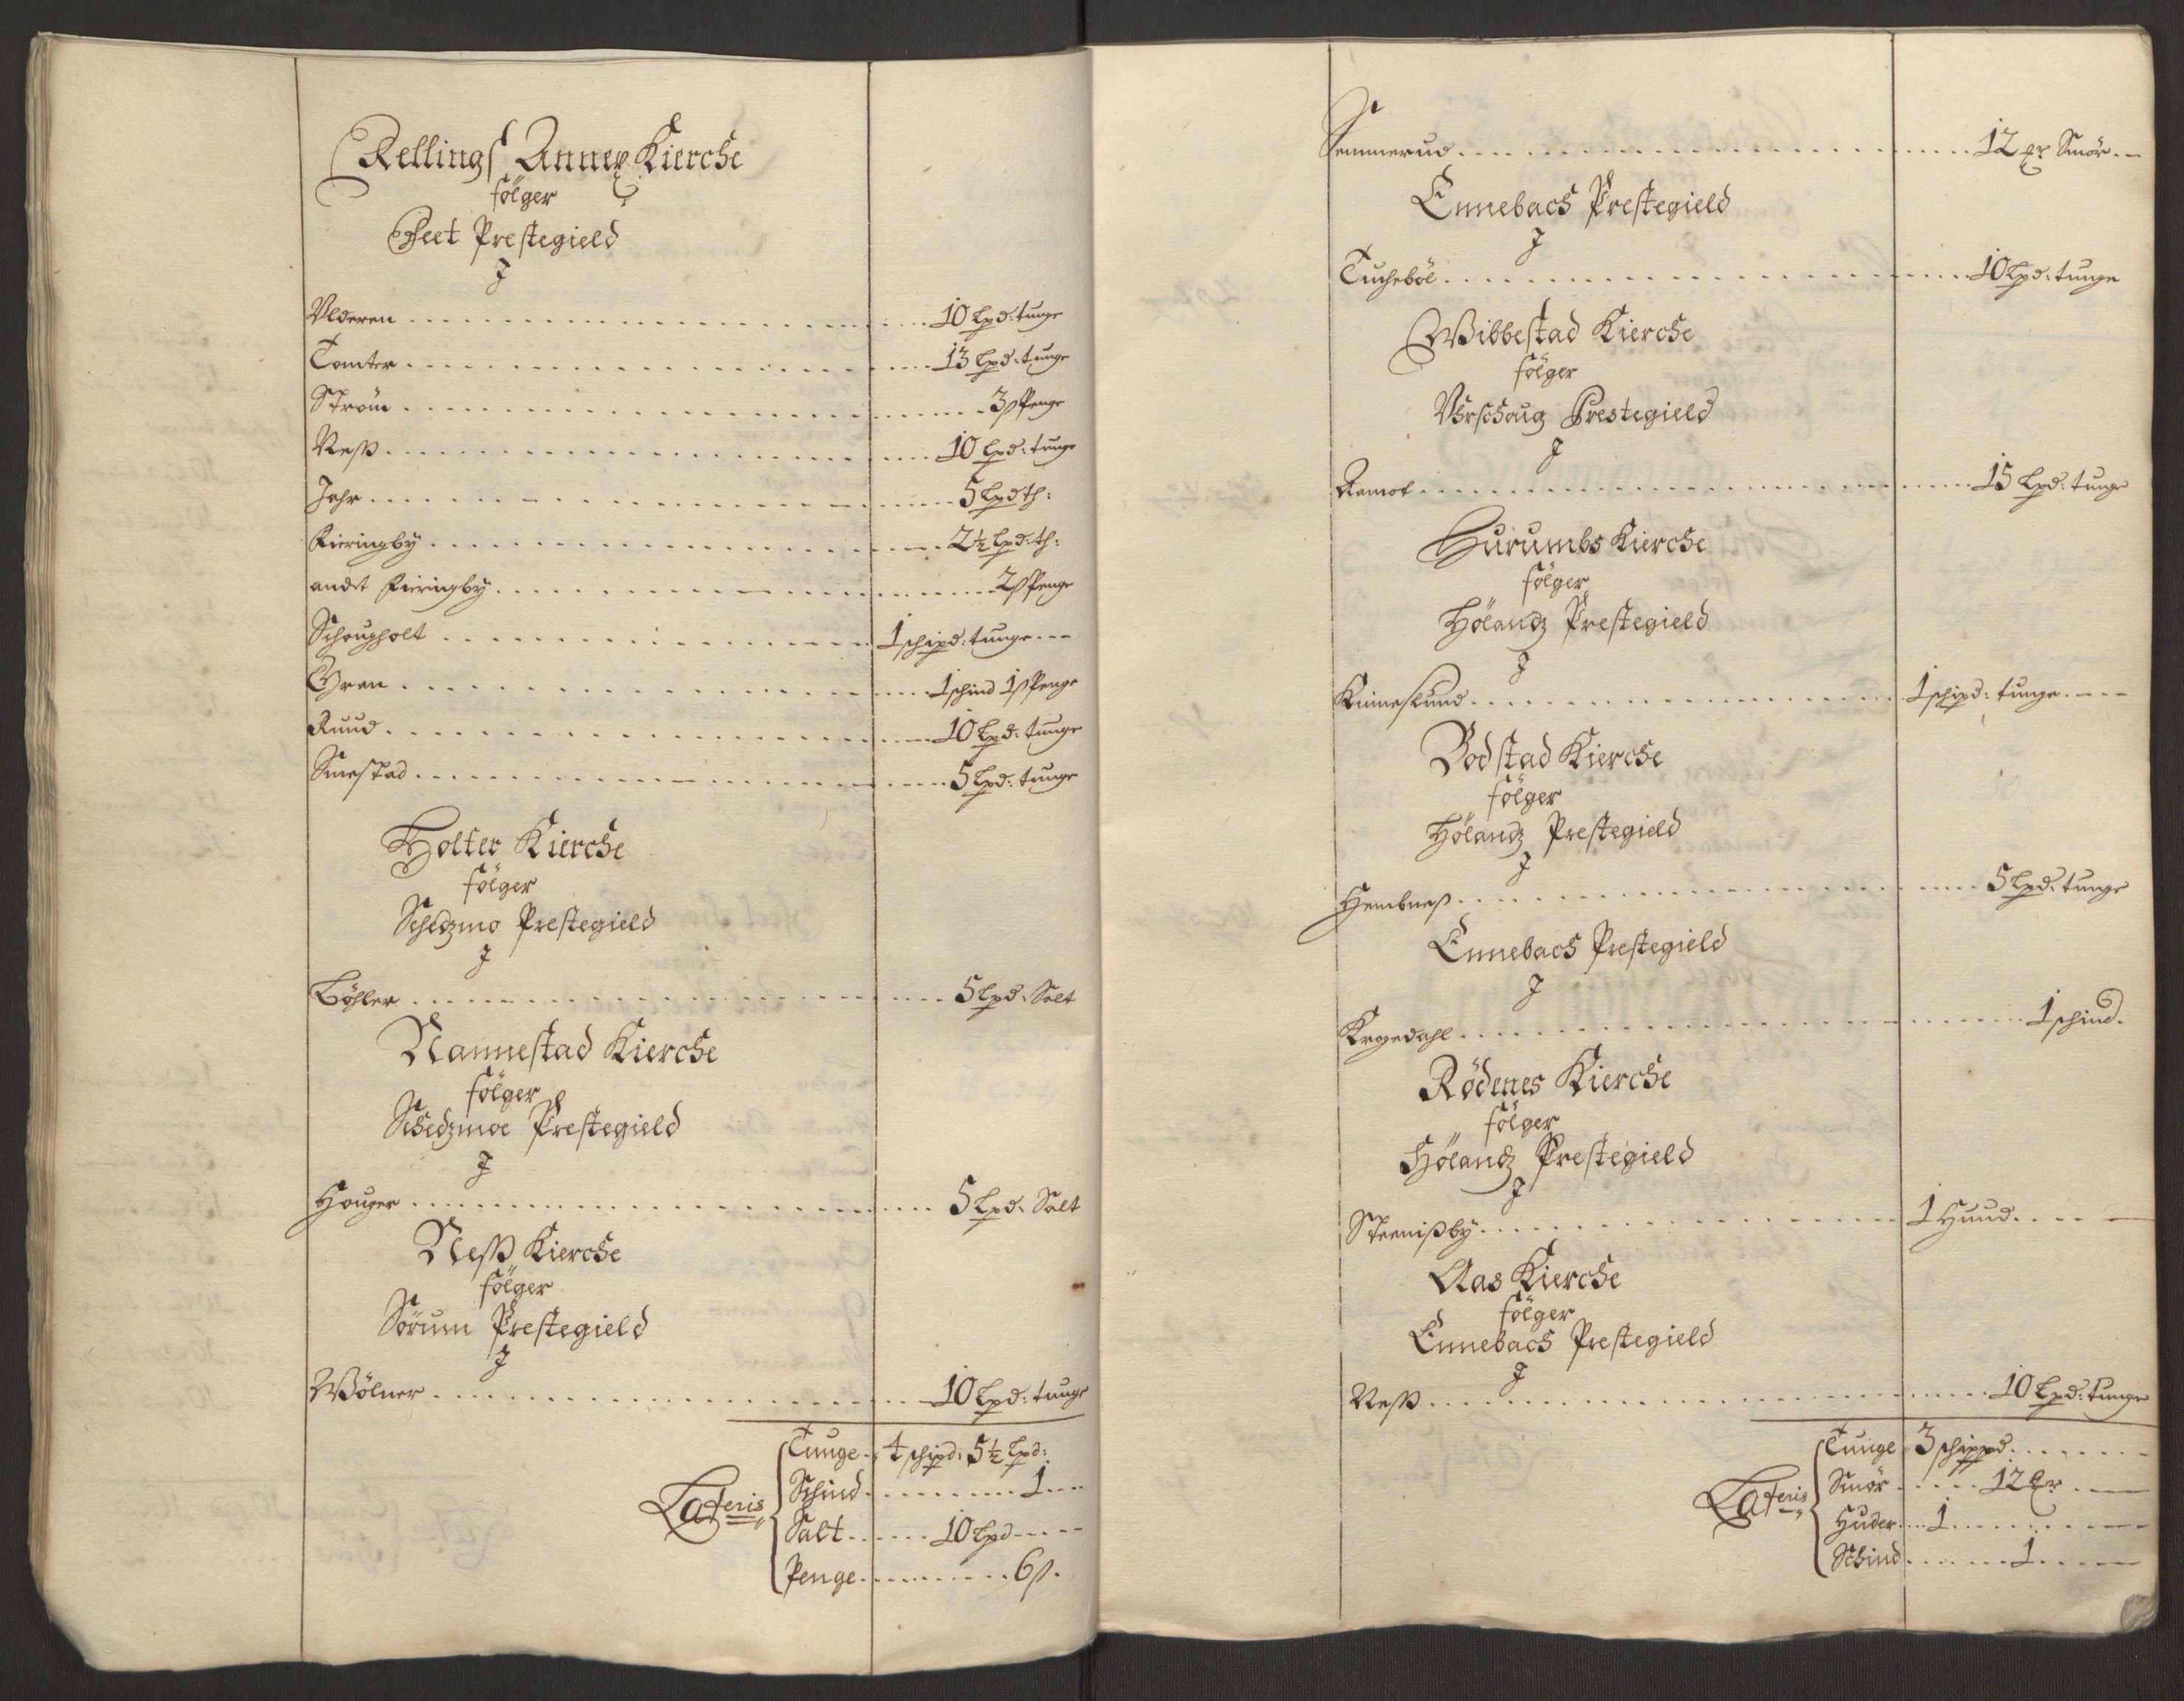 Rellings Annex Kierche
følger
Feet Prestegield
J
Vlderen 10 Lpd: tunge
Tomter 13 Lpd: tunge
Strøm 3 ß Penge
Neß 10 Lpd: tunge
Jahr 5 Lpd th:
Kieringby 2½ Lpd: th:
andet Kieringby 2 ß Penge
Schougholt 1 schipd: tunge
Gran 1 schind 1 ß Penge
Ruud 10 Lpd: tunge
Smestad 5 Lpd: tunge
Holter Kierche
følger
Schedzmo Prestegield
J
Böhler 5 Lpd. Salt
Nannestad Kierche
følger
Schedzmoe Prestegield
J
Houger 5 Lpd. Salt
Neß Kierche
følger
Sørum Prestegield
J
Wölner 10 Lpd: tunge
Lateris
Tunge 4 schipd: 5½ Lpd:
Schind 1
Salt 10 Lpd
Penge 6 ß.
Semmerud 12 Mr Smör
Ennebach Prestegield
J
Tucheböl 10 Lpd: tunge
Wibbestad Kierche
følger
Vrschoug Prestegield
J
Ramot 15 Lpd: tunge
Hurumbs Kierche
følger
Hölandz Prestegield
J
Kinneslund 1 schipd: tunge
Bodstad Kierche
følger
Hölandz Prestegield
J
Hembneß 5 Lpd. tunge
Ennebach Prestegield
J
Krogedahl 1 schind.
Rödenes Kierche
følger
Hölandz Prestegield
J
Steenißby 1 Huud
Aas Kierche
følger
Ennebach Prestegield
J
Neß 10 Lpd: tunge
Lateris
Tunge 3 schippd
Smör 12 Mr
Huder 1
Schind 1